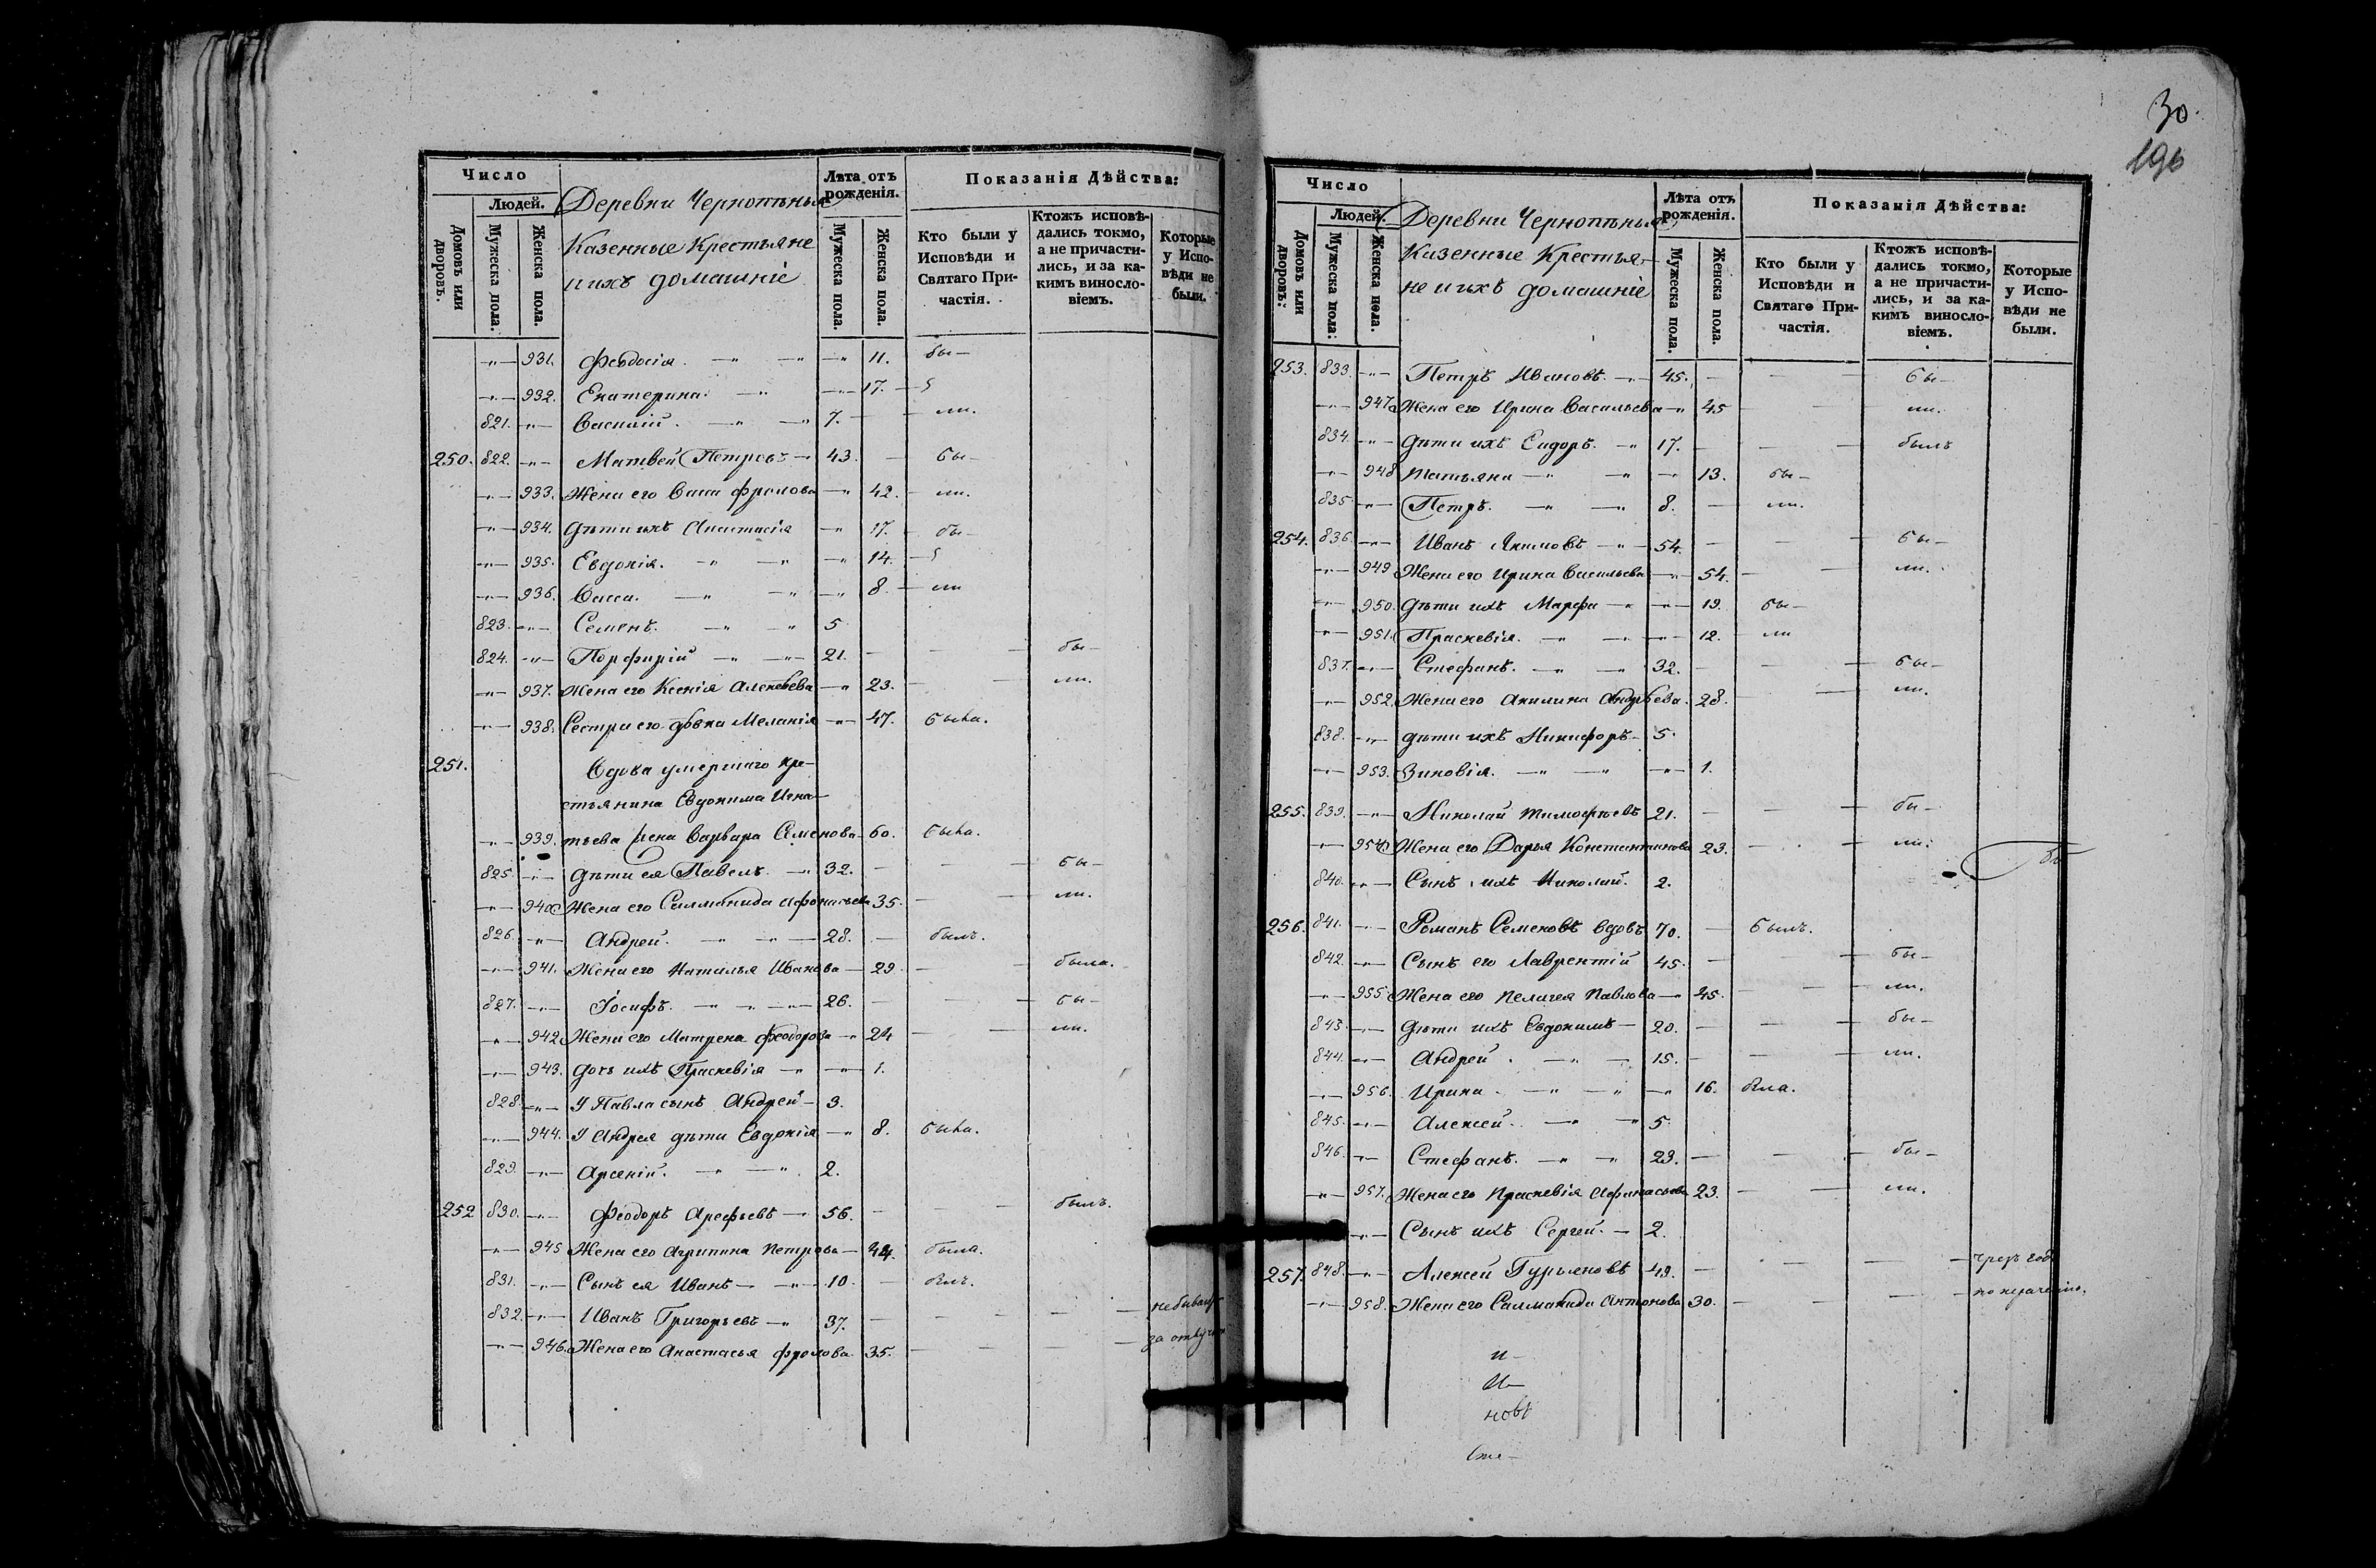 Число
Людей.
Домовъ или дворовъ.
Мужеска пола.
Женска пола.
Деревни Чернопѣнья
Казенные Крестьяне
и ихъ домашніе
Лѣта отъ рожденія.
Мужеска пола.
Женска пола.
Показанія Дѣйства:
Кто были у Исповѣди и Святаго Причастія.
Ктожъ исповѣдались токмо, а не причастились, и за какимъ винословіемъ.
Которые у Исповѣди не были.
-"- 931. Феодосія. -"- -"- -"- 11. бы-
-"- 932. Екатерина. -"- -"- 17.
821. -"- Василій. -"- -"- 7. ли.
250. 822. -"- Матвей Петровъ -"- 43. - бы-
-"- 933. Жена его Васса Фролова -"- 42. ли.
-"- 934. Дѣти ихъ Анастасія -"- 17. бы-
-"- 935. Евдокія. -"- -"- -"- 14.
-"- 936. Васса. -"- -"- -"- 8. ли
823. -"- Семенъ. -"- -"- 5
824. -"- Порфирій -"- -"- 21. - - бы-
-"- 937. Жена его Ксенія Алексѣева -"- 23. - - ли.
-"- 938. Сестра его дѣвка Меланія -"- 47. была.
251. Вдова умершаго кре-
стьянина Евдокима Игна-
-"- 939. тьева жена Варвара Семенова 60. была.
825. -"- Дѣти ея Павелъ. -"- 32. - - бы-
-"- 940 Жена его Саламанида Афонасьева 35. - - ли.
826. -"- Андрей. -"- -"- 28. - былъ.
-"- 941. Жена его Наталья Иванова - 29. - - была.
827. -"- Іосифъ. -"- -"- 26. - - бы-
-"- 942 Жена его Матрена Феодорова -"- 24 - - ли.
-"- 943. Дочь ихъ Праскевія -"- -"- 1.
828. -"- У Павла сынъ Андрей - 3.
-"- 944. У Андрея дѣти Евдокія -"- 8. была.
829. -"- Арсеній. -"- -"- 2.
252 830. -"- Феодоръ Арефьевъ -"- 56. - - былъ.
-"- 945 Жена его Агрипина Петрова - 44. была.
831. -"- Сынъ ея Иванъ -"- 10. - былъ.
832. -"- Иванъ Григорьевъ -"- 37. - - - - не бывалъ
-"- 946. Жена его Анастасья Фролова 35. - - - - за отлуч
30.
196
Число
Людей.
Домовъ или дворовъ.
Мужеска пола.
Женска пола.
Деревни Чернопѣнья,
Казенные Крестья-
не и ихъ домашніе
Лѣта отъ рожденія.
Мужеска пола.
Женска пола.
Показанія Дѣйства:
Кто были у Исповѣди и Святаго Причастія.
Ктожъ исповѣдались токмо, а не причастились, и за какимъ винословіемъ.
Которые у Исповѣди не были.
253. 833. -"- Петръ Ивановъ. -"- 45. - - бы-
-"- 947 Жена его Ирина Васильева -"- 45 - - ли.
834. -"- Дѣти ихъ Сидоръ. -"- 17. - - былъ
-"- 948 Татьяна -"- -"- -"- 13. бы-
835 -"- Петръ. -"- -"- 8. - ли.
254. 836. -"- Иванъ Якимовъ -"- 54. - - бы-
-"- 949 Жена его Ирина Васильева -"- 54. - - ли.
-"- 950. Дѣти ихъ Марфа -"- -"- 19. бы-
-"- 951. Праскевія. -"- -"- -"- 12. - ли
837. -"- Стефанъ. -"- -"- 32. - - бы-
-"- 952. Жена его Акилина Андрѣева. 28. - - ли.
838. -"- дѣти ихъ Никифоръ - 5.
-"- 953. Зиновія. -"- -"- -"- 1.
255. 839. -"- Николай Тимофѣевъ 21. - - бы-
-"- 954. Жена его Дарья Константинова 23. - - ли.
840. -"- Сынъ ихъ Николай. 2.
256. 841. -"- Романъ Семеновъ вдовъ 70. - былъ.
842. -"- Сынъ его Лаврентій 45. - - бы-
-"- 955. Жена его Пелагея Павлова -"- 45. - - ли.
843. -"- Дѣти ихъ Евдокимъ - 20. - - бы-
844. -"- Андрей. -"- -"- 15. - - ли.
-"- 956. Ирина. -"- -"- -"- 16. была.
845. -"- Алексей. -"- -"- 5.
846. -"- Стефанъ. -"- -"- 23. - - бы-
-"- 957. Жена его Праскевія Афанасьева 23. - - ли.
-"- Сынъ ихъ Сергей. - 2.
257. 848. -"- Алексей Гурьяновъ 49. - - - -
-"- 958. Жена его Саламанида Антонова 30. - - - -
и-
новъ